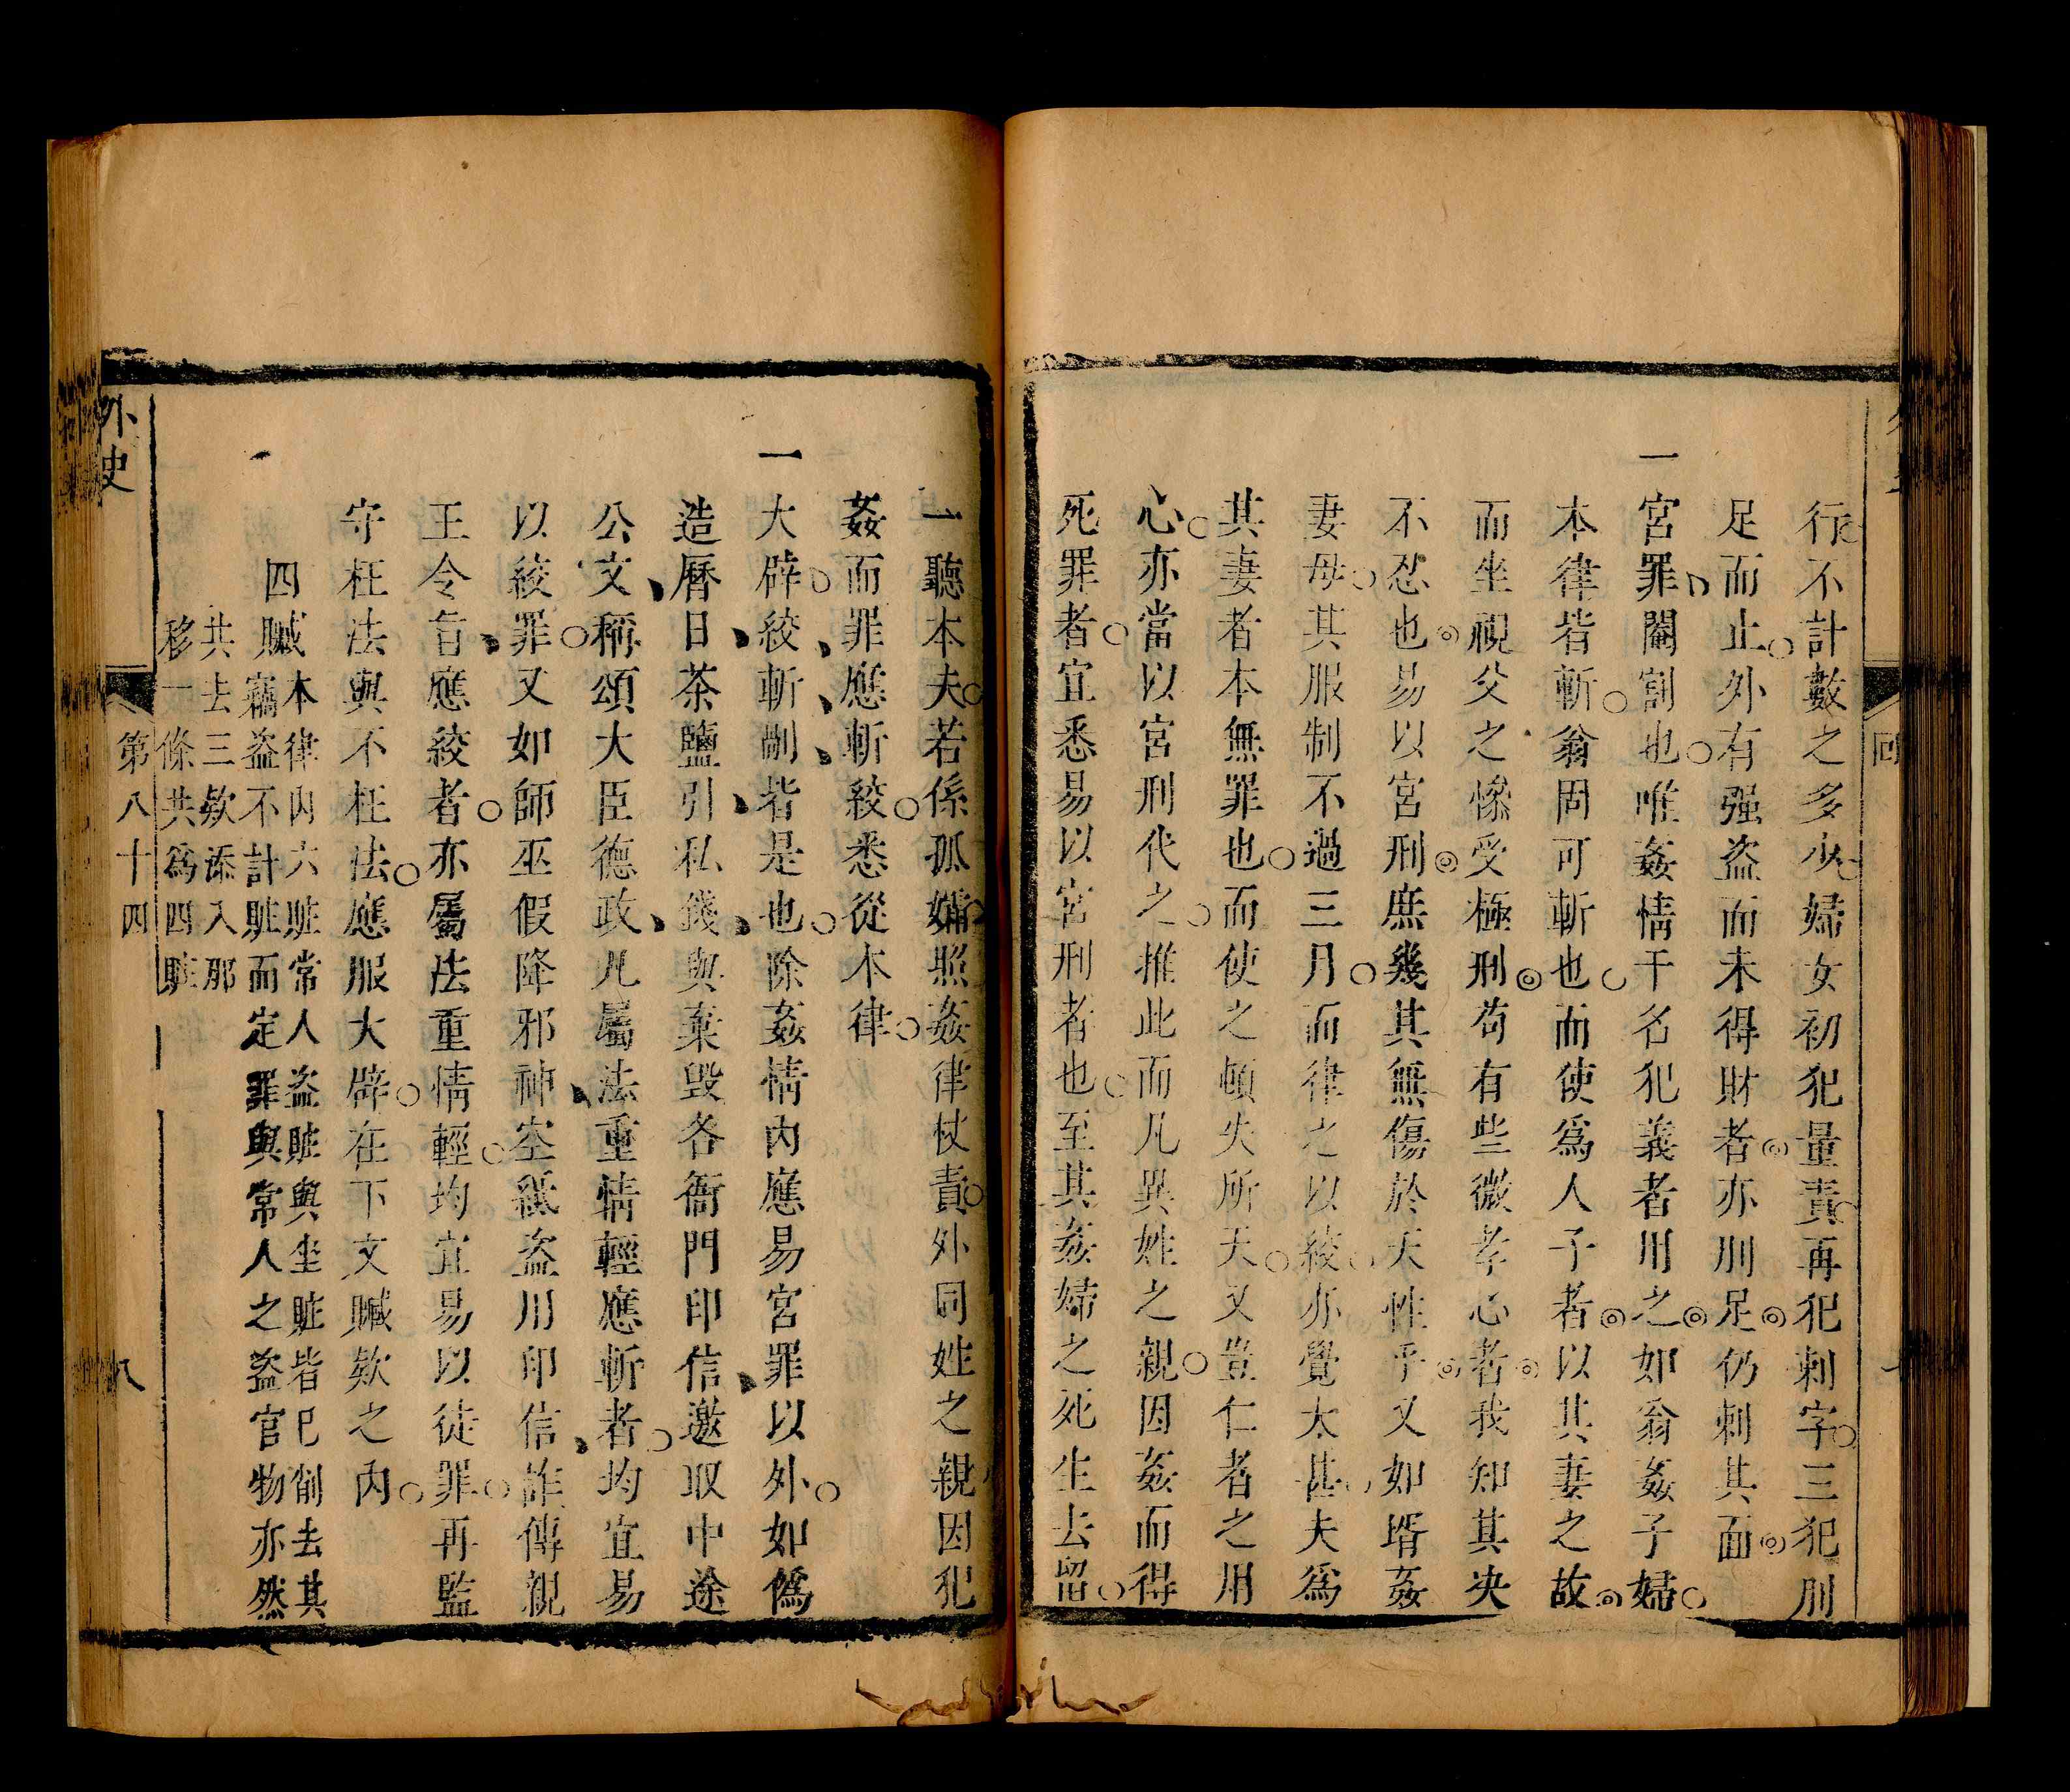 行不計數之多少婦女初犯量責再犯刺字三犯刖
足而止外有强盜而未得財者亦刖足仍刺其面
一宮罪閹割也唯姦情干名犯義者用之如翁姦子婦
本律皆斬翁固可斬也而使爲人子者以其妻之故
而坐視父之慘受極刑苟有些微孝心者我知其决
不忍也易以宮刑庶幾其無傷於天性乎又如壻姦
妻母其服制不過三月而律之以絞亦覺太甚夫爲
其妻者本無罪也而使之頓失所天又豈仁者之用
心亦當以宮刑代之推此而凡異姓之親因姦而得
死罪者宜悉易以宮刑者也至其姦婦之死生去留
一聽本夫若係孤孀照姦律杖責外同姓之親因犯
姦而罪應斬絞悉從本律
一大辟絞斬剮皆是也除姦情內應易宮罪以外如僞
造曆日茶鹽引私錢與棄毀各衙門印信邀取中途
公文稱頌大臣德政凡屬法重情輕應斬者均宜易
以絞罪又如師巫假降邪神空紙盜用印信詐傳親
王令旨應絞者亦屬法重情輕均宜易以徒罪再監
守枉法與不枉法應服大辟在下文贓欵之內
一四贓本律內六賍常人盜賍與坐賍皆已削去其
竊盜不計賍而定罪與常人之盜官物亦然
共去三欵添入那
移一條共爲四賍
外史
第八十四
八
回